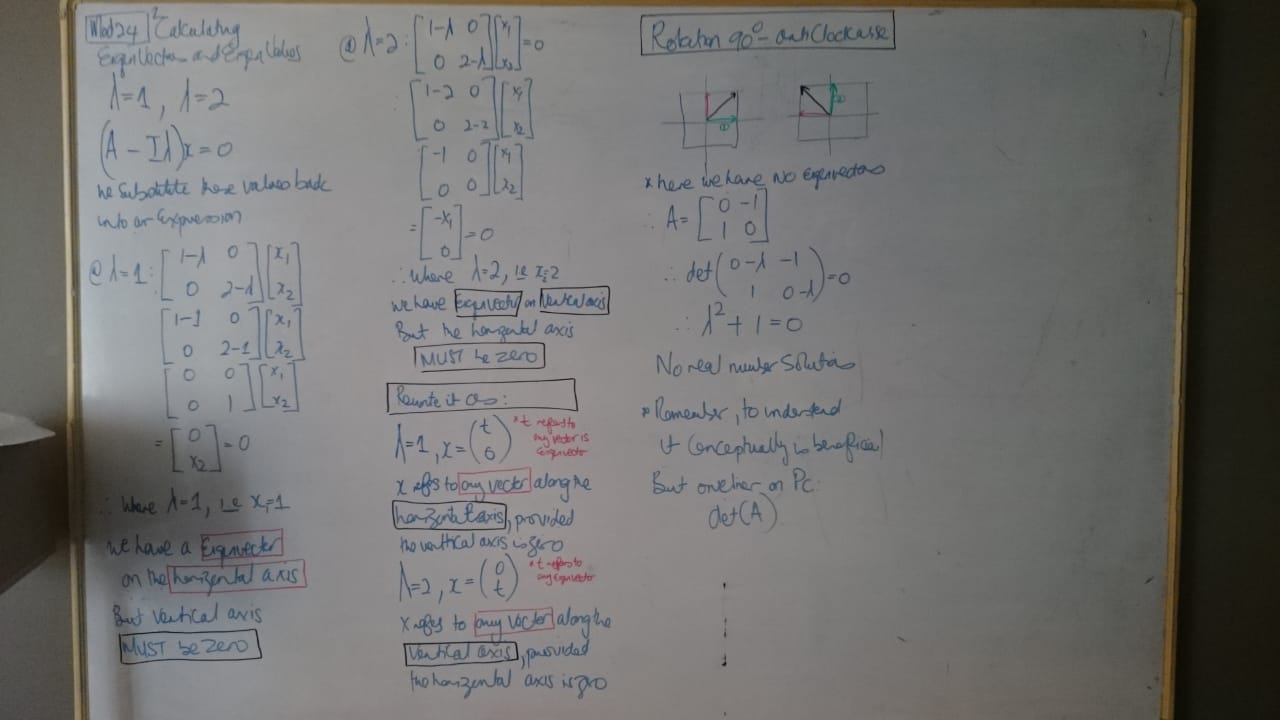 Mod24 2 Calculating
EigenVectors and EigenValues
λ=1, λ=2
(A - Iλ)x=0
We Substitute these values back
into our Expression
@ λ=1: [1-λ 0; 0 2-λ][x₁; x₂]
[1-1 0; 0 2-1][x₁; x₂]
[0 0; 0 1][x₁; x₂]
= [0; x₂] = 0
∴ Where λ=1, ie x₁=1
we have a Eigenvector
on the horizontal axis
But Vertical axis
MUST be zero
@ λ=2: [1-λ 0; 0 2-λ][x₁; x₂]=0
[1-2 0; 0 2-2][x₁; x₂]
[-1 0; 0 0][x₁; x₂]
= [-x₁; 0] = 0
∴ Where λ=2, ie x₂=2
we have Eigenvector on Vertical axis
But the horizontal axis
MUST be zero
Rewrite it as:
λ=1, x=(t; 0)
*t refers to
any vector is
Eigenvector
x refers to any vector along the
horizontal axis, provided
the vertical axis is zero
λ=2, x=(0; t)
*t refers to
any eigenvector
x refers to any vector along the
Vertical axis, provided
the horizontal axis is zero
Rotation 90° - anticlockwise
①
②
* here we have No Eigenvectors
∴ A= [0 -1; 1 0]
∴ det(0-λ -1; 1 0-λ)=0
∴ λ²+1=0
No real number Solutions
* Remember, to understand
it Conceptually is beneficial
But oneliner on Pc:
det(A)